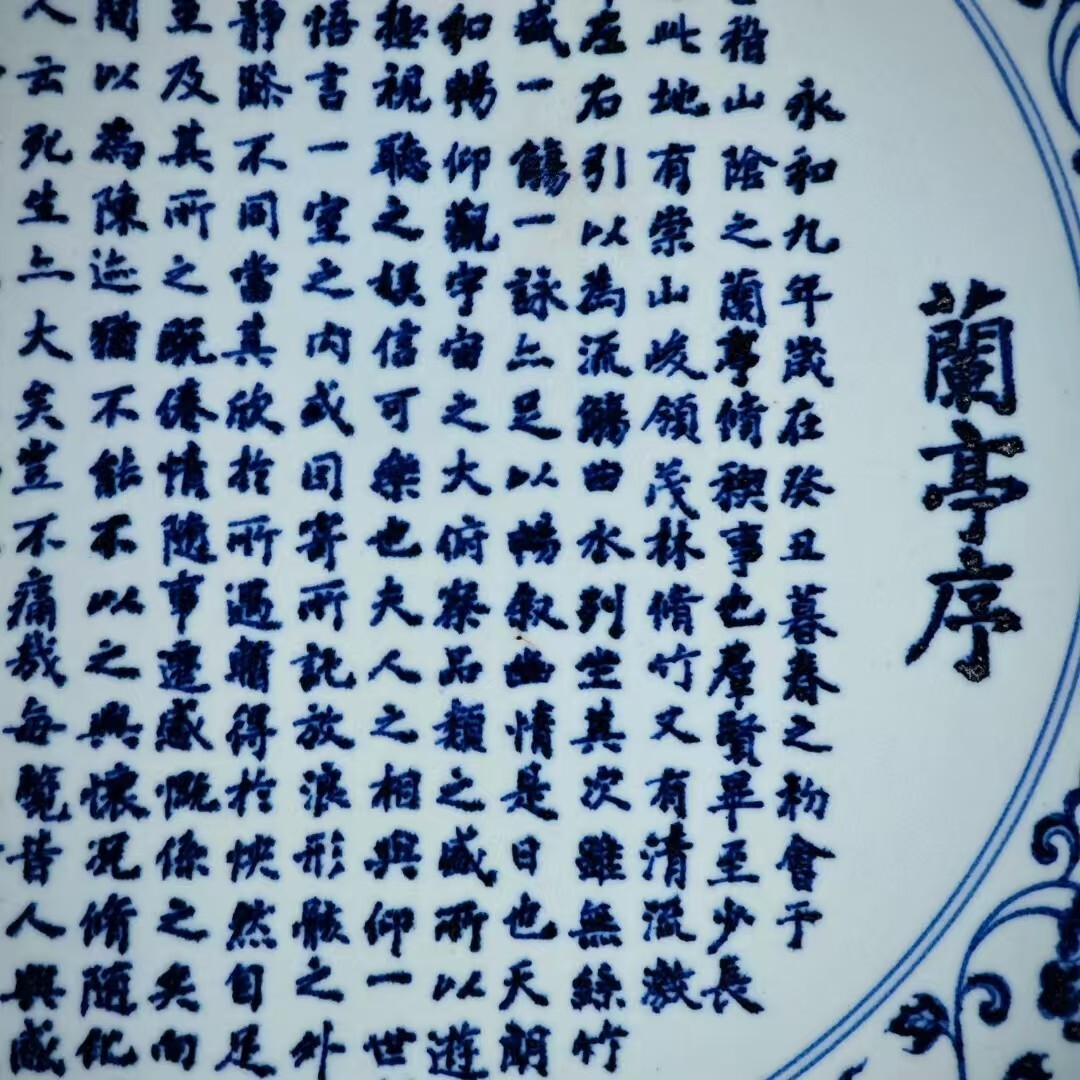 蘭亭序
永和九年歲在癸丑暮春之初會于
稽山陰之蘭亭脩禊事也羣賢畢至少長
此地有崇山峻領茂林脩竹又有清流激
左右引以為流觴曲水列坐其次雖無絲竹
盛一觴一詠亦足以暢敘幽情是日也天朗
和暢仰觀宇宙之大俯察品類之盛所以遊
極視聽之娛信可樂也夫人之相與仰一世
悟言一室之內或因寄所託放浪形骸之外
靜躁不同當其欣於所遇暫得於怏然自足
至及其所之既倦情隨事遷感慨係之矣向
間以為陳迹猶不能不以之興懷況脩隨化
人云死生亦大矣豈不痛哉每覽昔人興感